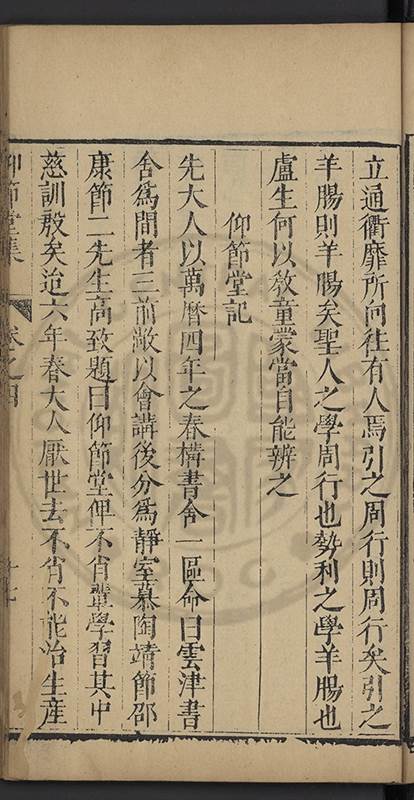 立通衢靡所向徃有人焉引之周行則周行矣引之
羊腸則羊腸矣聖人之學周行也勢利之學羊腸也
盧生何以敎童蒙當自能辨之
仰節堂記
先大人以萬曆四年之春構書舍一區命曰雲津書
舍爲間者三前敞以會講後分爲靜室慕陶靖節邵
康節二先生高致題曰仰節堂俾不肖輩學習其中
慈訓殷矣迨六年春大人厭世去不肖不能治生産
仰節堂集
卷之四